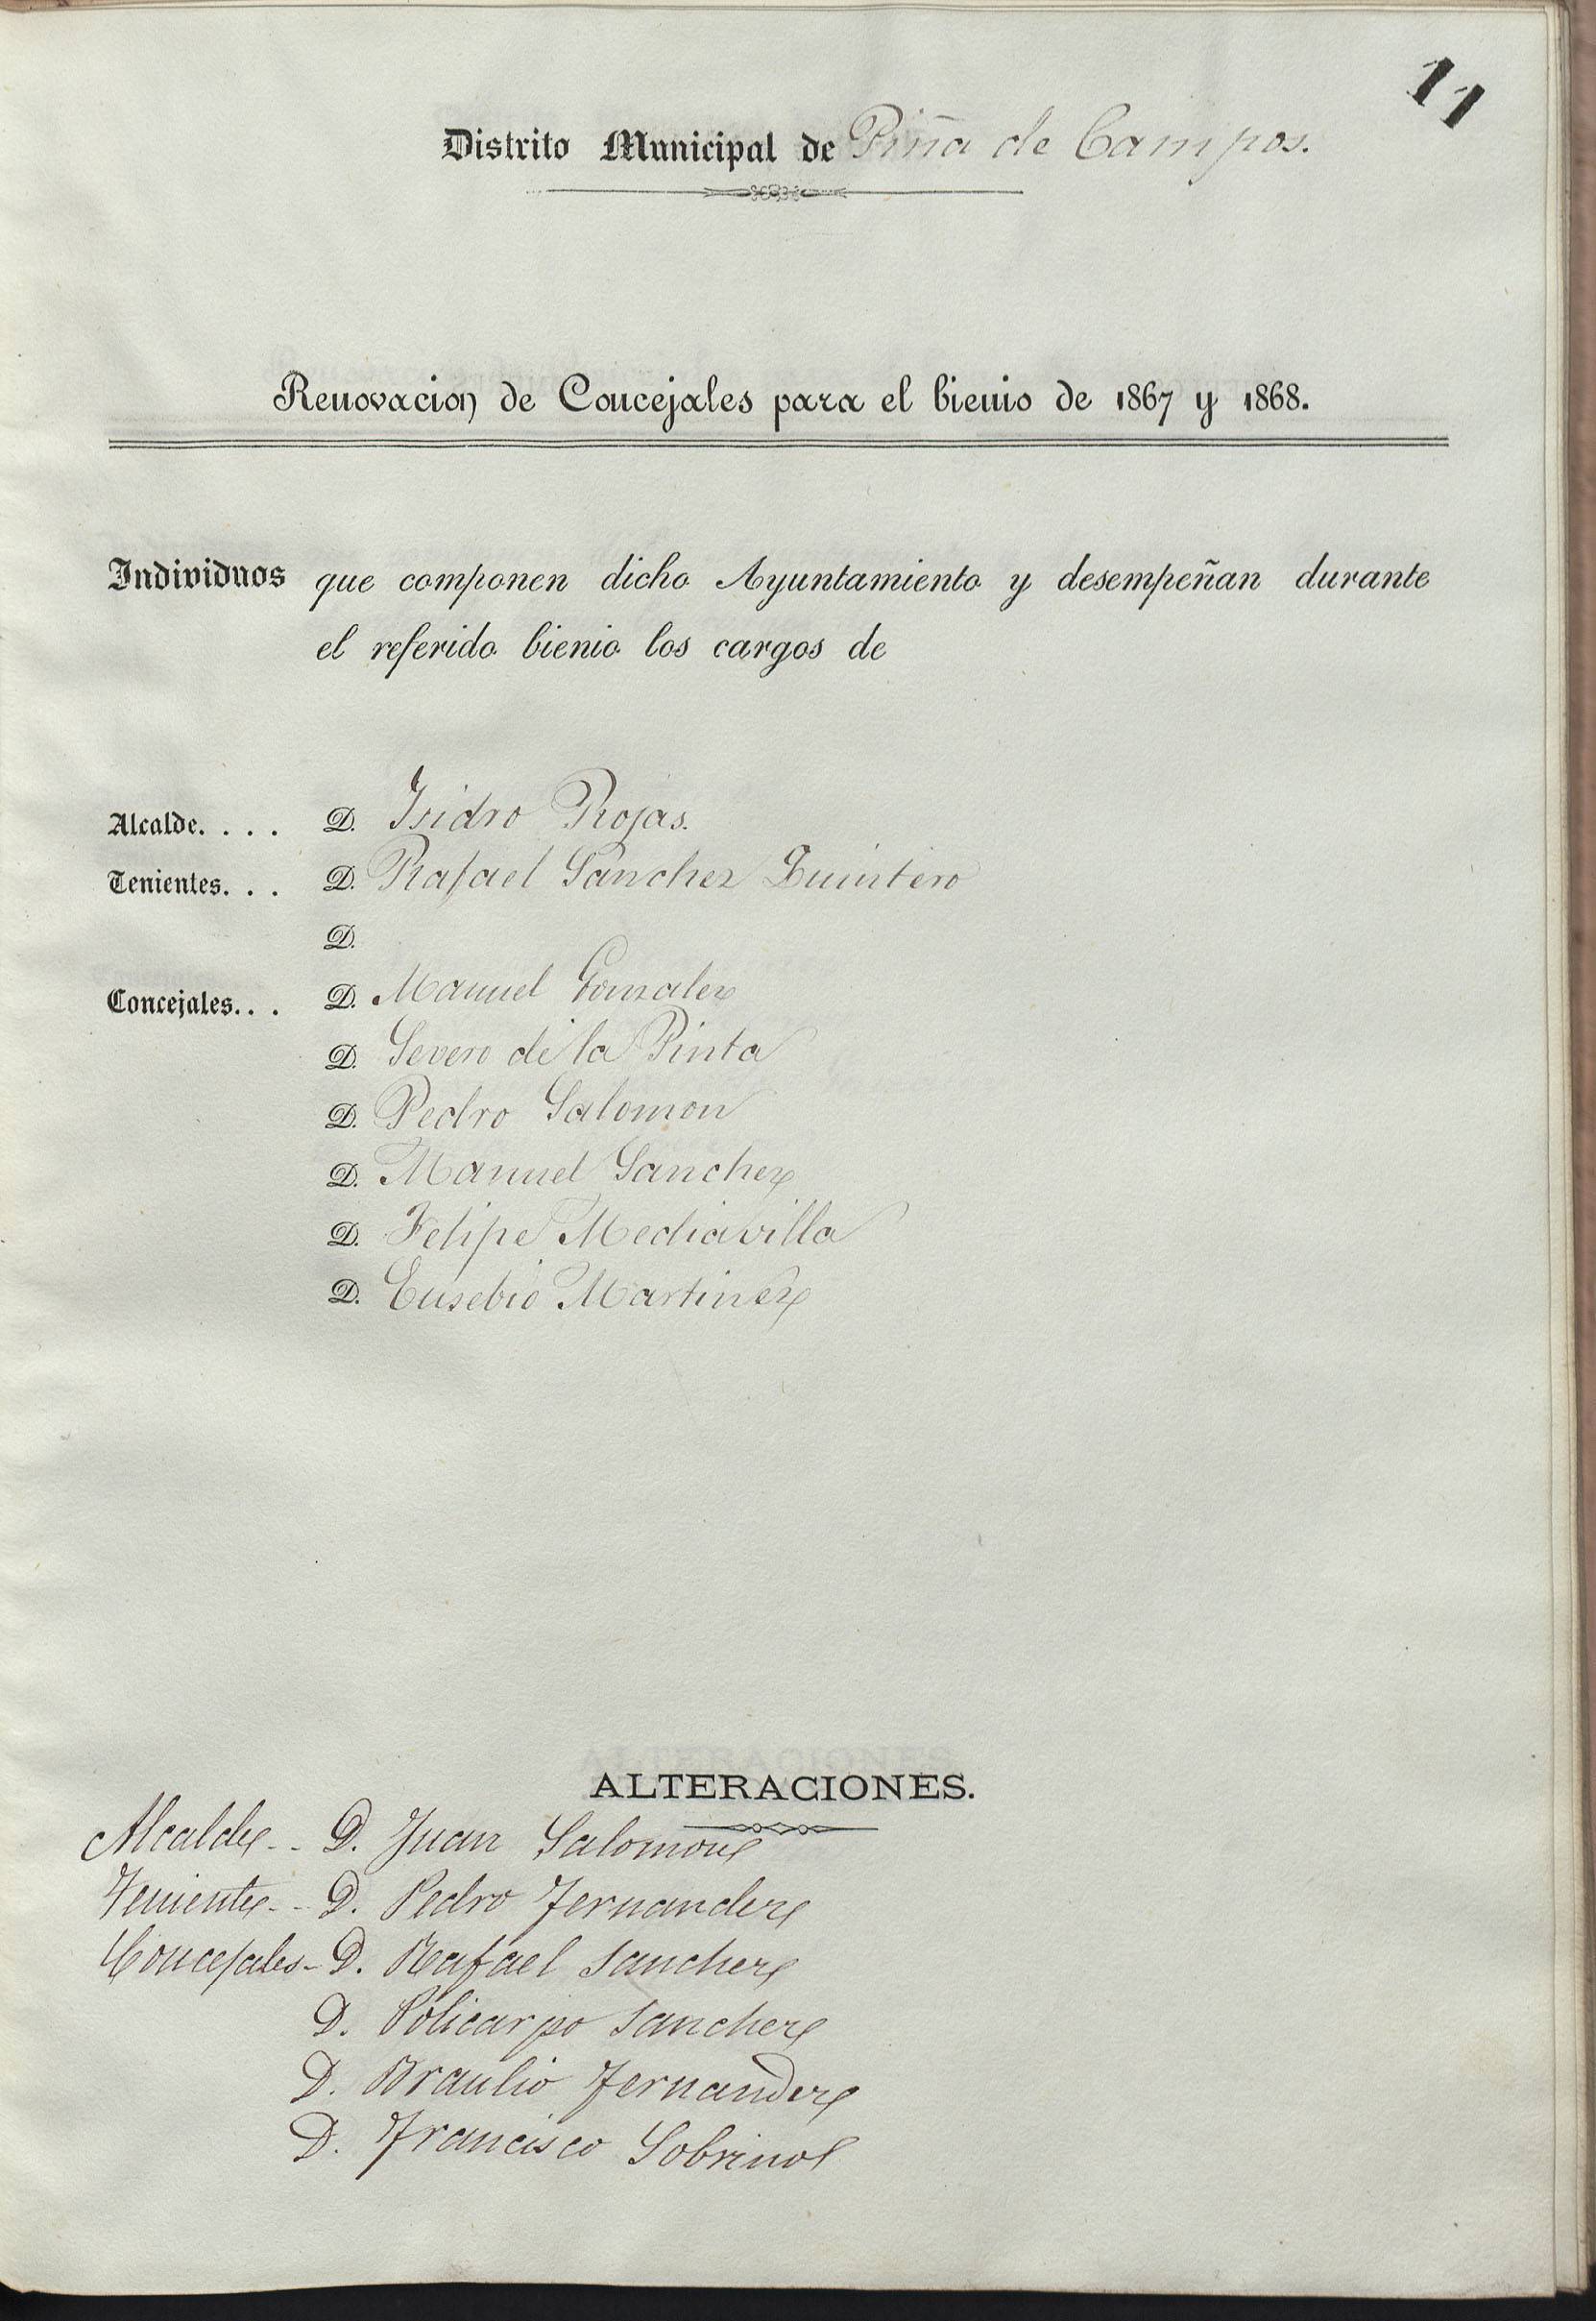 11
Distrito Municipal de Piña de Campos.
Renovacion de Concejales para el bienio de 1867 y 1868.
Individuos que componen dicho Ayuntamiento y desempeñan durante
el referido bienio los cargos de
Alcalde. . . . D. Isidro Rojas.
Tenientes. . . D. Rafael Sanchez Quintero
D.
Concejales. . . D. Manuel Gonzalez
D. Severo de la Pinta
D. Pedro Salomon
D. Manuel Sanchez
D. Felipe Mediavilla
D. Eusebio Martinez
ALTERACIONES.
Alcalde - - D. Juan Salomon
Teniente - - D. Pedro Fernandez
Concejales - D. Rafael Sanchez
D. Policarpo Sanchez
D. Braulio Fernandez
D. Francisco Sobrino